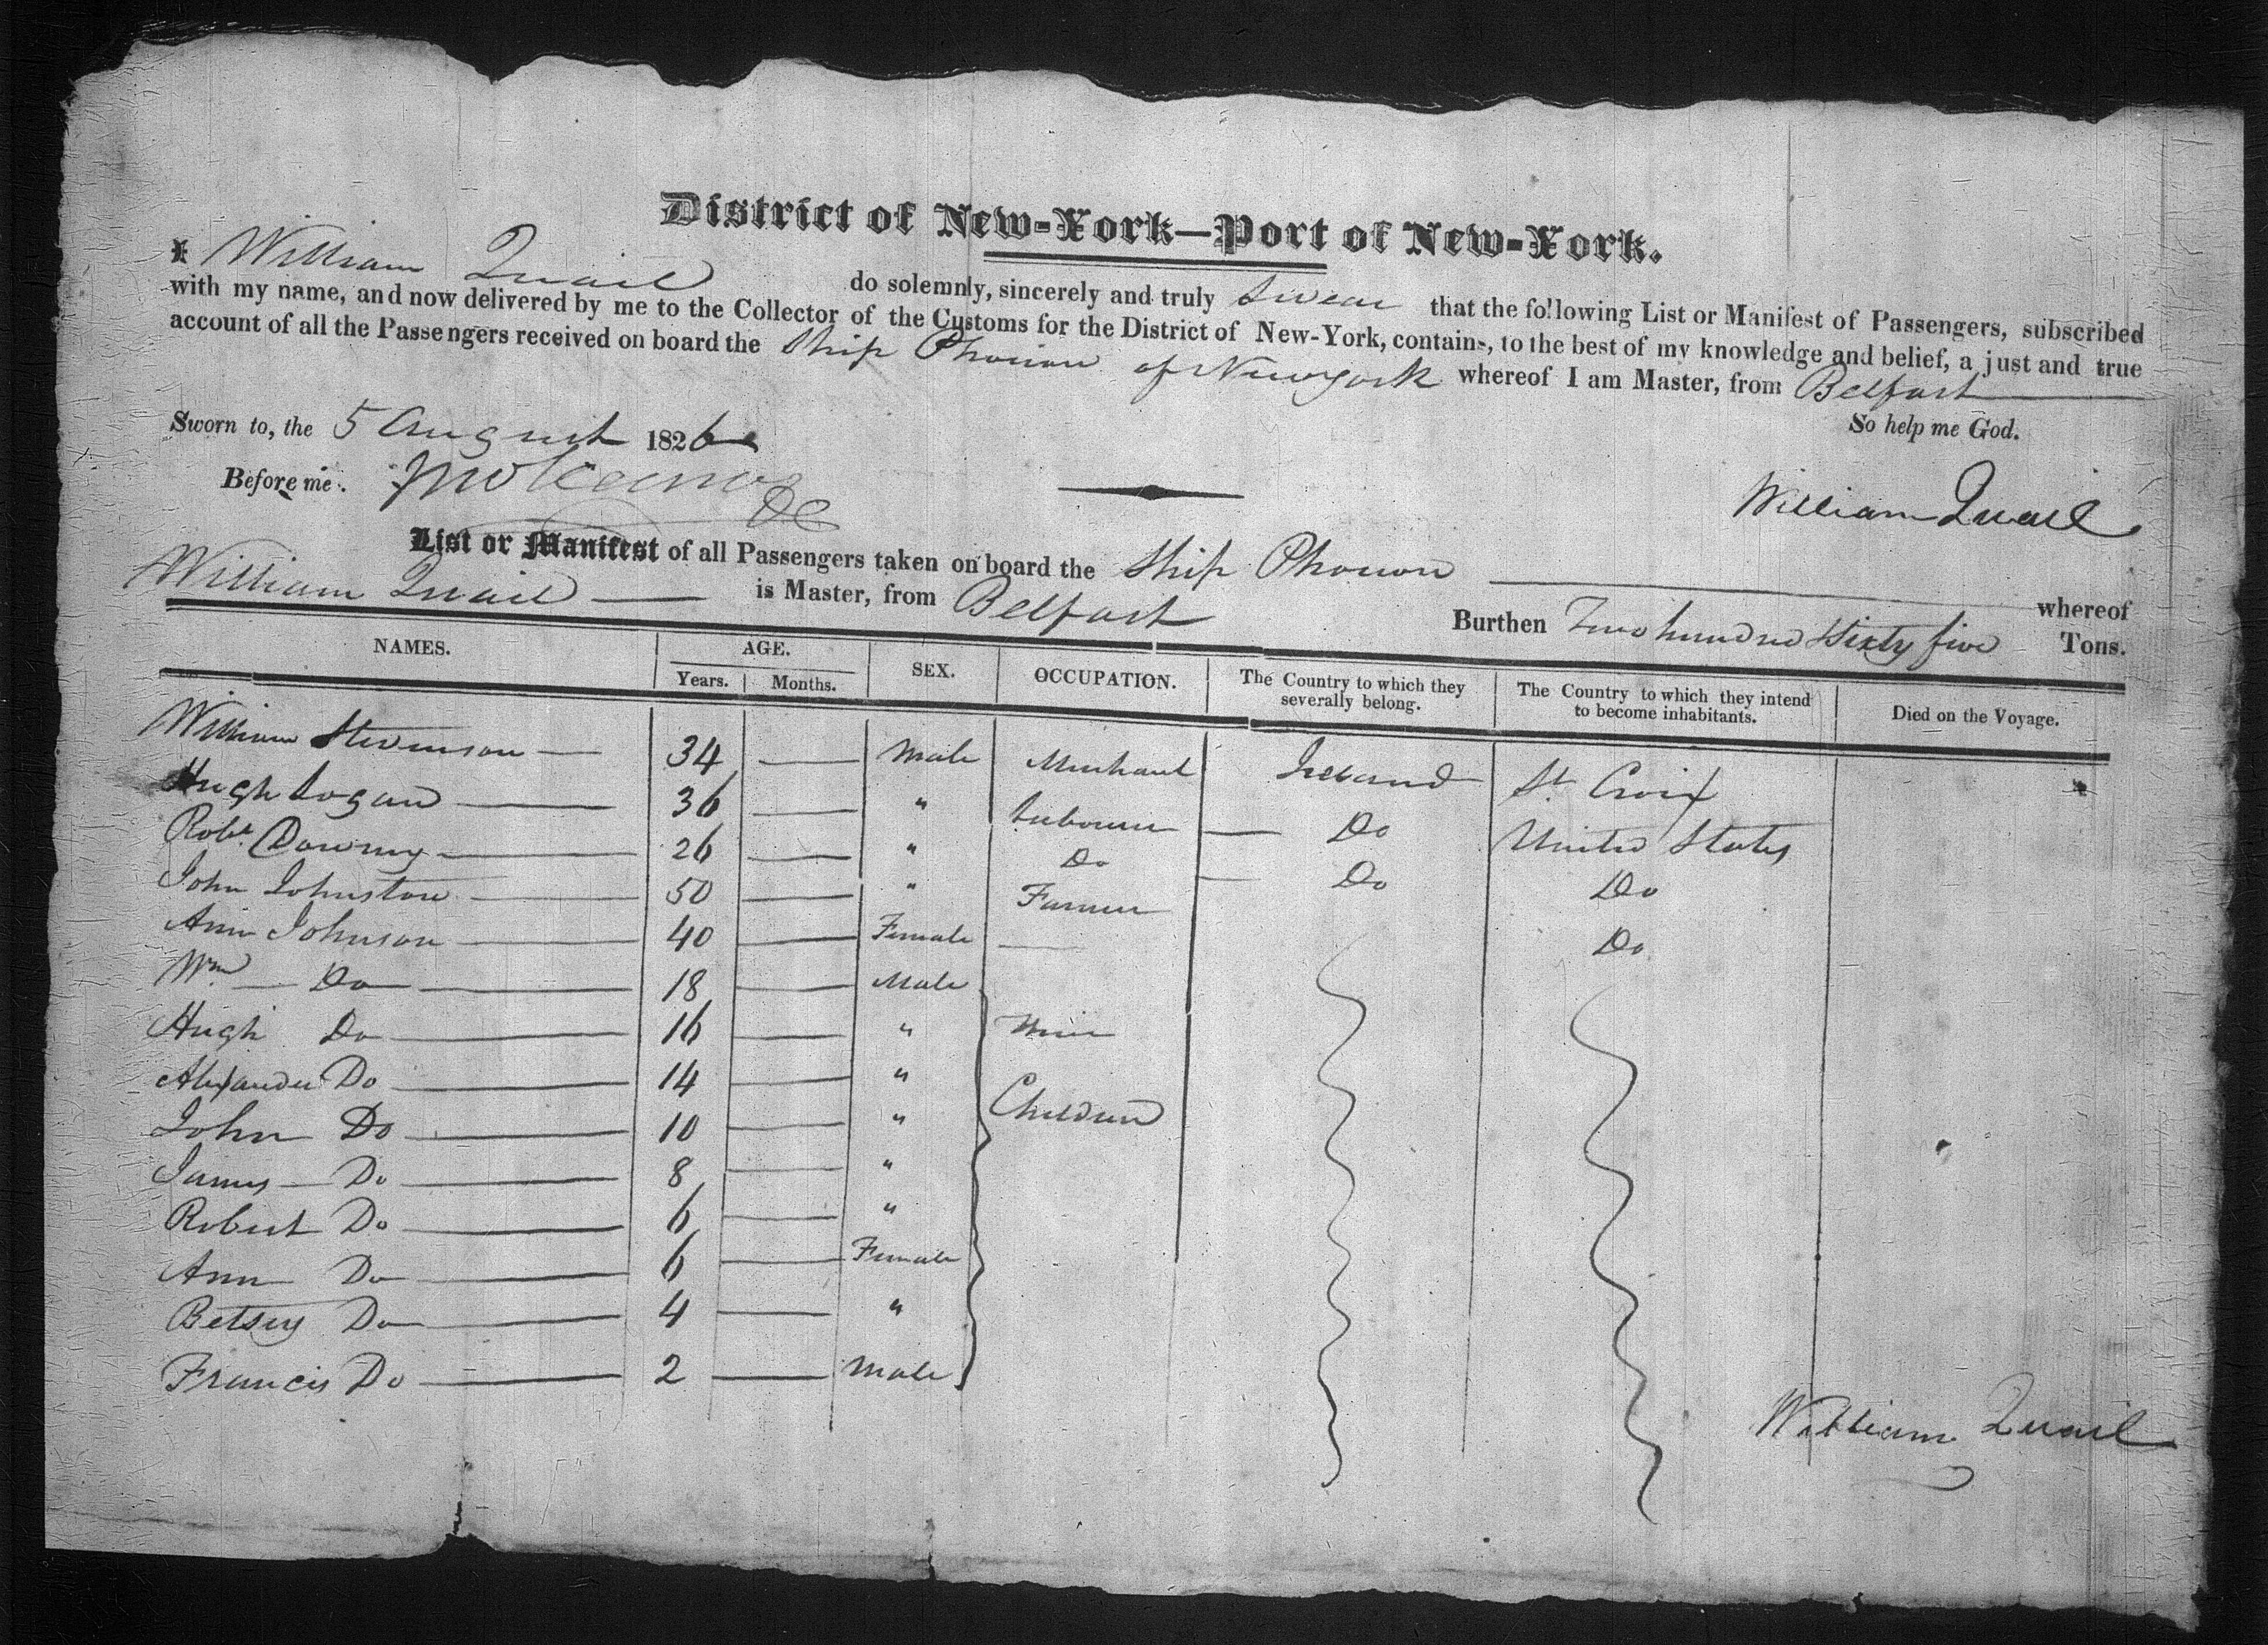 District of New-York—Port of New-York.
I William Quail do solemnly, sincerely and truly swear that the following List or Manifest of Passengers, subscribed
with my name, and now delivered by me to the Collector of the Customs for the District of New-York, contains, to the best of my knowledge and belief, a just and true
account of all the Passengers received on board the Ship Phocion of Newyork whereof I am Master, from Belfast
Sworn to, the 5 August 1826
So help me God.
Before me
William Quail
List or Manifest of all Passengers taken on board the Ship Phocion whereof
William Quail is Master, from Belfast Burthen Two hundred Sixty five Tons.
NAMES. AGE. SEX. OCCUPATION. The Country to which they severally belong. The Country to which they intend to become inhabitants. Died on the Voyage.
Years. Months.
William Stevenson 34 Male Merchant Ireland St. Croix
Hugh Logan 36 " Labourer Do United States
Robt. Downing 26 " Do Do Do
John Johnston 50 " Farmer Do
Ann Johnson 40 Female
Wm. Do 18 Male
Hugh Do 16 "
Alexander Do 14 "
John Do 10 " Children
James Do 8 "
Robert Do 6 "
Ann Do 6 Female
Betsey Do 4 "
Francis Do 2 Male
William Quail